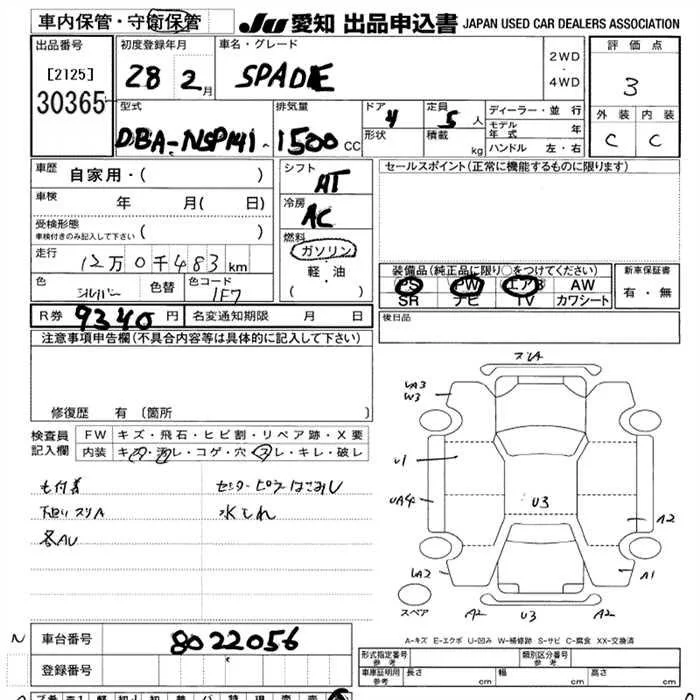 車内保管・守衛保管
JU 愛知 出品申込書 JAPAN USED CAR DEALERS ASSOCIATION
出品番号
[2125]
30365
初度登録年月
28 2月
車名・グレード
SPADE
2WD
・
4WD
評価点
3
外装 内装
C C
型式
DBA-NSP141
排気量
1500 CC
ドア 4
形状
定員 5 人
積載 kg
ディーラー・並行
モデル年式 年
ハンドル 左・右
車歴 自家用・( )
車検 年 月( 日)
受検形態
車検付きのみ記入して下さい ( )
走行 12万0千483km
色 シルバー 色替 色コード 1F7
シフト
AT
冷房
AC
燃料
ガソリン
軽・油
( )
セールスポイント(正常に機能するものに限ります)
装備品(純正品に限り○をつけてください)
PS PW エアB AW
SR ナビ TV カワシート
新車保証書
有・無
R券 9340 円 名変通知期限 月 日
後日品
注意事項申告欄(不具合内容等は具体的に記入して下さい)
修復歴 有 (箇所 )
検査員
記入欄
FW キズ・飛石・ヒビ割・リペア跡・X要
内装 キズ・汚レ・コゲ・穴・スレ・キレ・破レ
下廻りスリA
各AU
水もれ
スリA
UA3
W3
U1
UA4
U3
A2
UA2
A1
スペア
A2 U3 A2
A-キズ E-エクボ U-凹み W-補修跡 S-サビ C-腐食 XX-交換済
車台番号 8022056
登録番号
形式指定番号
参考
類別区分番号
参考
車庫証明用
参考
長さ cm 幅 cm 高さ cm